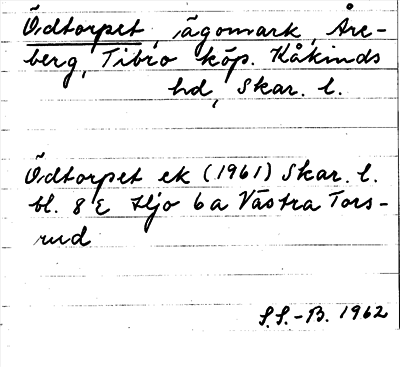 Ödtorpet, ägomark, Åre-
berg, Tibro köp. Kåkinds
hd, Skar. l.
Ödtorpet ek (1961) Skar. l.
bl. 8 E Hjo 6a Västra Tors-
rud
S.S.-B. 1962